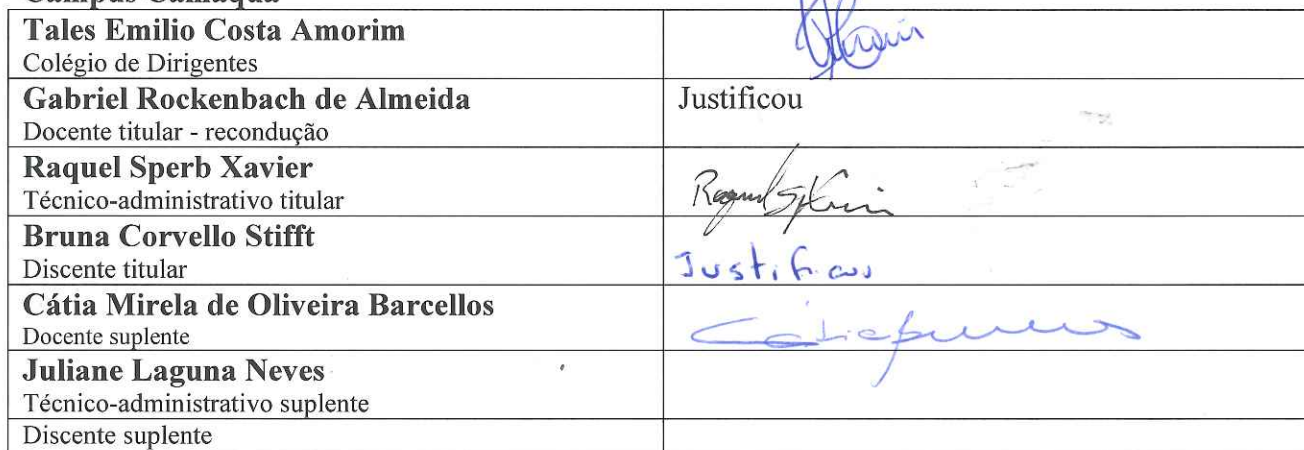 Campus Camaquã
Tales Emilio Costa Amorim
Colégio de Dirigentes
Gabriel Rockenbach de Almeida
Justificou
Docente titular - recondução
Raquel Sperb Xavier
Técnico-administrativo titular
Raquel S Xavier
Bruna Corvello Stifft
Discente titular
Justificou
Cátia Mirela de Oliveira Barcellos
Docente suplente
Juliane Laguna Neves
Técnico-administrativo suplente
Discente suplente